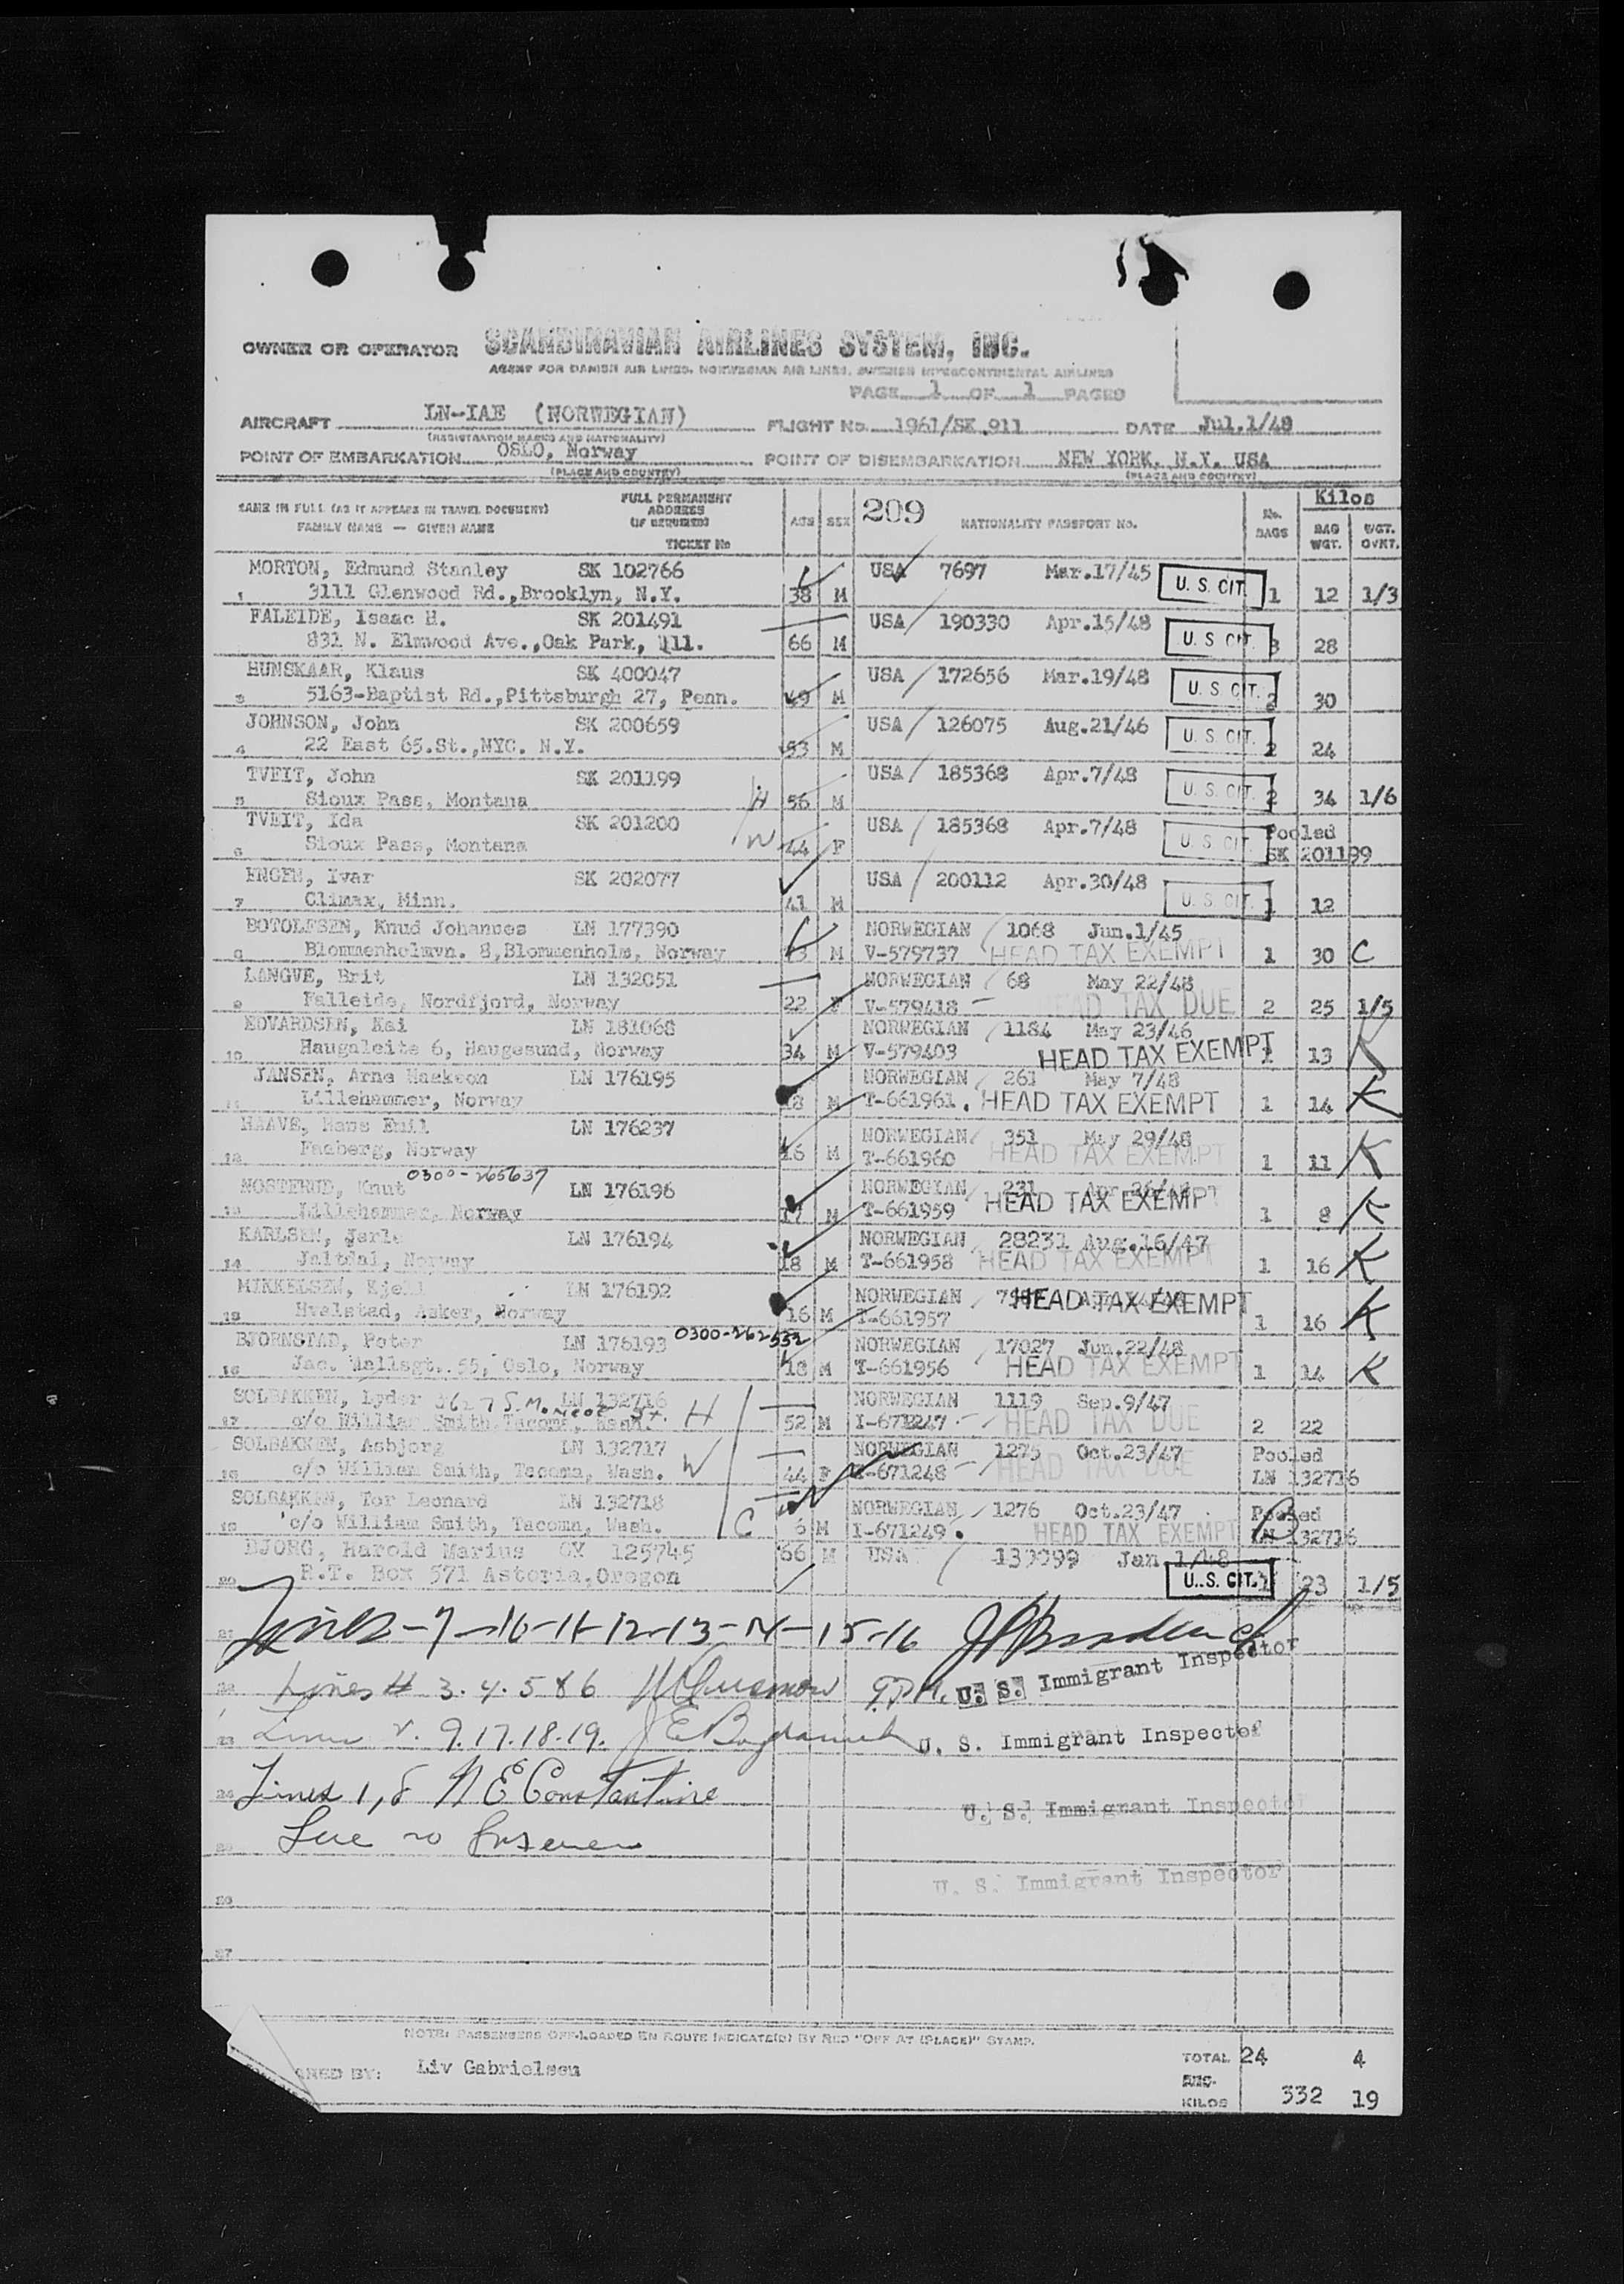 OWNER OR OPERATOR SCANDINAVIAN AIRLINES SYSTEM, INC.
AGENT FOR DANISH AIR LINES, NORWEGIAN AIR LINES, SWEDISH INTERCONTINENTAL AIRLINES
PAGE 1 OF 1 PAGES
AIRCRAFT LN-IAE (NORWEGIAN) FLIGHT No. 1961/SK 911 DATE Jul.1/48
(REGISTRATION MARKS AND NATIONALITY)
POINT OF EMBARKATION OSLO, Norway POINT OF DISEMBARKATION NEW YORK, N.Y. USA
(PLACE AND COUNTRY) (PLACE AND COUNTRY)
NAME IN FULL (AS IT APPEARS IN TRAVEL DOCUMENT) FULL PERMANENT ADDRESS (IF REQUIRED) AGE SEX 209 NATIONALITY PASSPORT No. No. BAGS Kilos
FAMILY NAME — GIVEN NAME TICKET No BAG WGT. WGT. OVNT.
MORTON, Edmund Stanley SK 102766 USA 7697 Mar.17/45 U. S. CIT.
1 3111 Glenwood Rd.,Brooklyn, N.Y. 38 M 1 12 1/3
FALEIDE, Isaac H. SK 201491 USA 190330 Apr.15/48 U. S. CIT.
831 N. Elmwood Ave.,Oak Park, Ill. 66 M 3 28
HUNSKAAR, Klaus SK 400047 USA 172656 Mar.19/48 U. S. CIT.
3 5163-Baptist Rd.,Pittsburgh 27, Penn. 49 M 2 30
JOHNSON, John SK 200659 USA 126075 Aug.21/46 U. S. CIT.
4 22 East 65.St.,NYC. N.Y. 53 M 2 24
TVEIT, John SK 201199 USA 185368 Apr.7/48 U. S. CIT.
5 Sioux Pass, Montana H 56 M 2 34 1/6
TVEIT, Ida SK 201200 USA 185368 Apr.7/48 U. S. CIT. Pooled
6 Sioux Pass, Montana W 44 F SK 201199
ENGEN, Ivar SK 202077 USA 200112 Apr.30/48 U. S. CIT.
7 Climax, Minn. 41 M 1 12
BOTOLFSEN, Knud Johannes LN 177390 NORWEGIAN 1068 Jun.1/45
Blommenholmvn. 8,Blommenholm, Norway M V-579737 HEAD TAX EXEMPT 1 30 C
LANGVE, Brit LN 132051 NORWEGIAN 68 May 22/48
9 Falleide, Nordfjord, Norway 22 F V-579418 HEAD TAX DUE 2 25 1/5
EDVARDSEN, Kai LN 181068 NORWEGIAN 1184 May 23/46
10 Haugaleite 6, Haugesund, Norway 34 M V-579403 HEAD TAX EXEMPT 1 13 K
JANSEN, Arne LN 176195 NORWEGIAN 261 May 7/48
11 Lillehammer, Norway 18 M T-661961 HEAD TAX EXEMPT 1 14 K
HAAVE, Hans Emil LN 176237 NORWEGIAN 351 May 29/48
12 Faaberg, Norway 16 M T-661960 HEAD TAX EXEMPT 1 11 K
0300-265637
NOSTERUD, Knut LN 176196 NORWEGIAN 231
13 Lillehammer, Norway 17 M T-661959 HEAD TAX EXEMPT 1 8 K
KARLSEN, Jarle LN 176194 NORWEGIAN 28231 Aug.16/47
14 Norway 18 M T-661958 HEAD TAX EXEMPT 1 16 K
MIKKELSEN, Kjell LN 176192 NORWEGIAN HEAD TAX EXEMPT
15 Hvalstad, Asker, Norway 16 M T-661957 1 16 K
BJORNSTAD, Peter LN 176193 0300-262532 NORWEGIAN 17027 Jun.22/48
16 Jac. Hallsgt. 55, Oslo, Norway 18 M T-661956 HEAD TAX EXEMPT 1 14 K
SOLBAKKEN, Lyder LN 132716 3627 S. Monroe St. NORWEGIAN 1119 Sep.9/47
17 c/o William Smith, Tacoma, Wash. H 52 M I-671247 HEAD TAX DUE 2 22
SOLBAKKEN, Asbjorg LN 132717 NORWEGIAN 1275 Oct.23/47 Pooled
18 c/o William Smith, Tacoma, Wash. W 44 F I-671248 HEAD TAX DUE LN 132716
SOLBAKKEN, Tor Leonard LN 132718 NORWEGIAN 1276 Oct.23/47 Pooled
19 c/o William Smith, Tacoma, Wash. C 6 M I-671249 HEAD TAX EXEMPT LN 132716
BJORG, Harold Marius OY 125745 66 M USA 139099 Jan 1/48
20 R.T. Box 571 Astoria,Oregon U. S. CIT. 1 23 1/5
21 Lines-7-10-11-12-13-14-15-16
U. S. Immigrant Inspector
22 Lines # 3. 4. 5 & 6
23 Lines 2. 9. 17. 18. 19. U. S. Immigrant Inspector
24 Lines 1, 8 N E Constantine U. S. Immigrant Inspector
25 Line 20
U. S. Immigrant Inspector
26
27
NOTE: PASSENGERS OFF-LOADED EN ROUTE INDICATE(D) BY RED "OFF AT (PLACE)" STAMP.
NED BY: Liv Gabrielsen TOTAL 24 4
KILOS 332 19